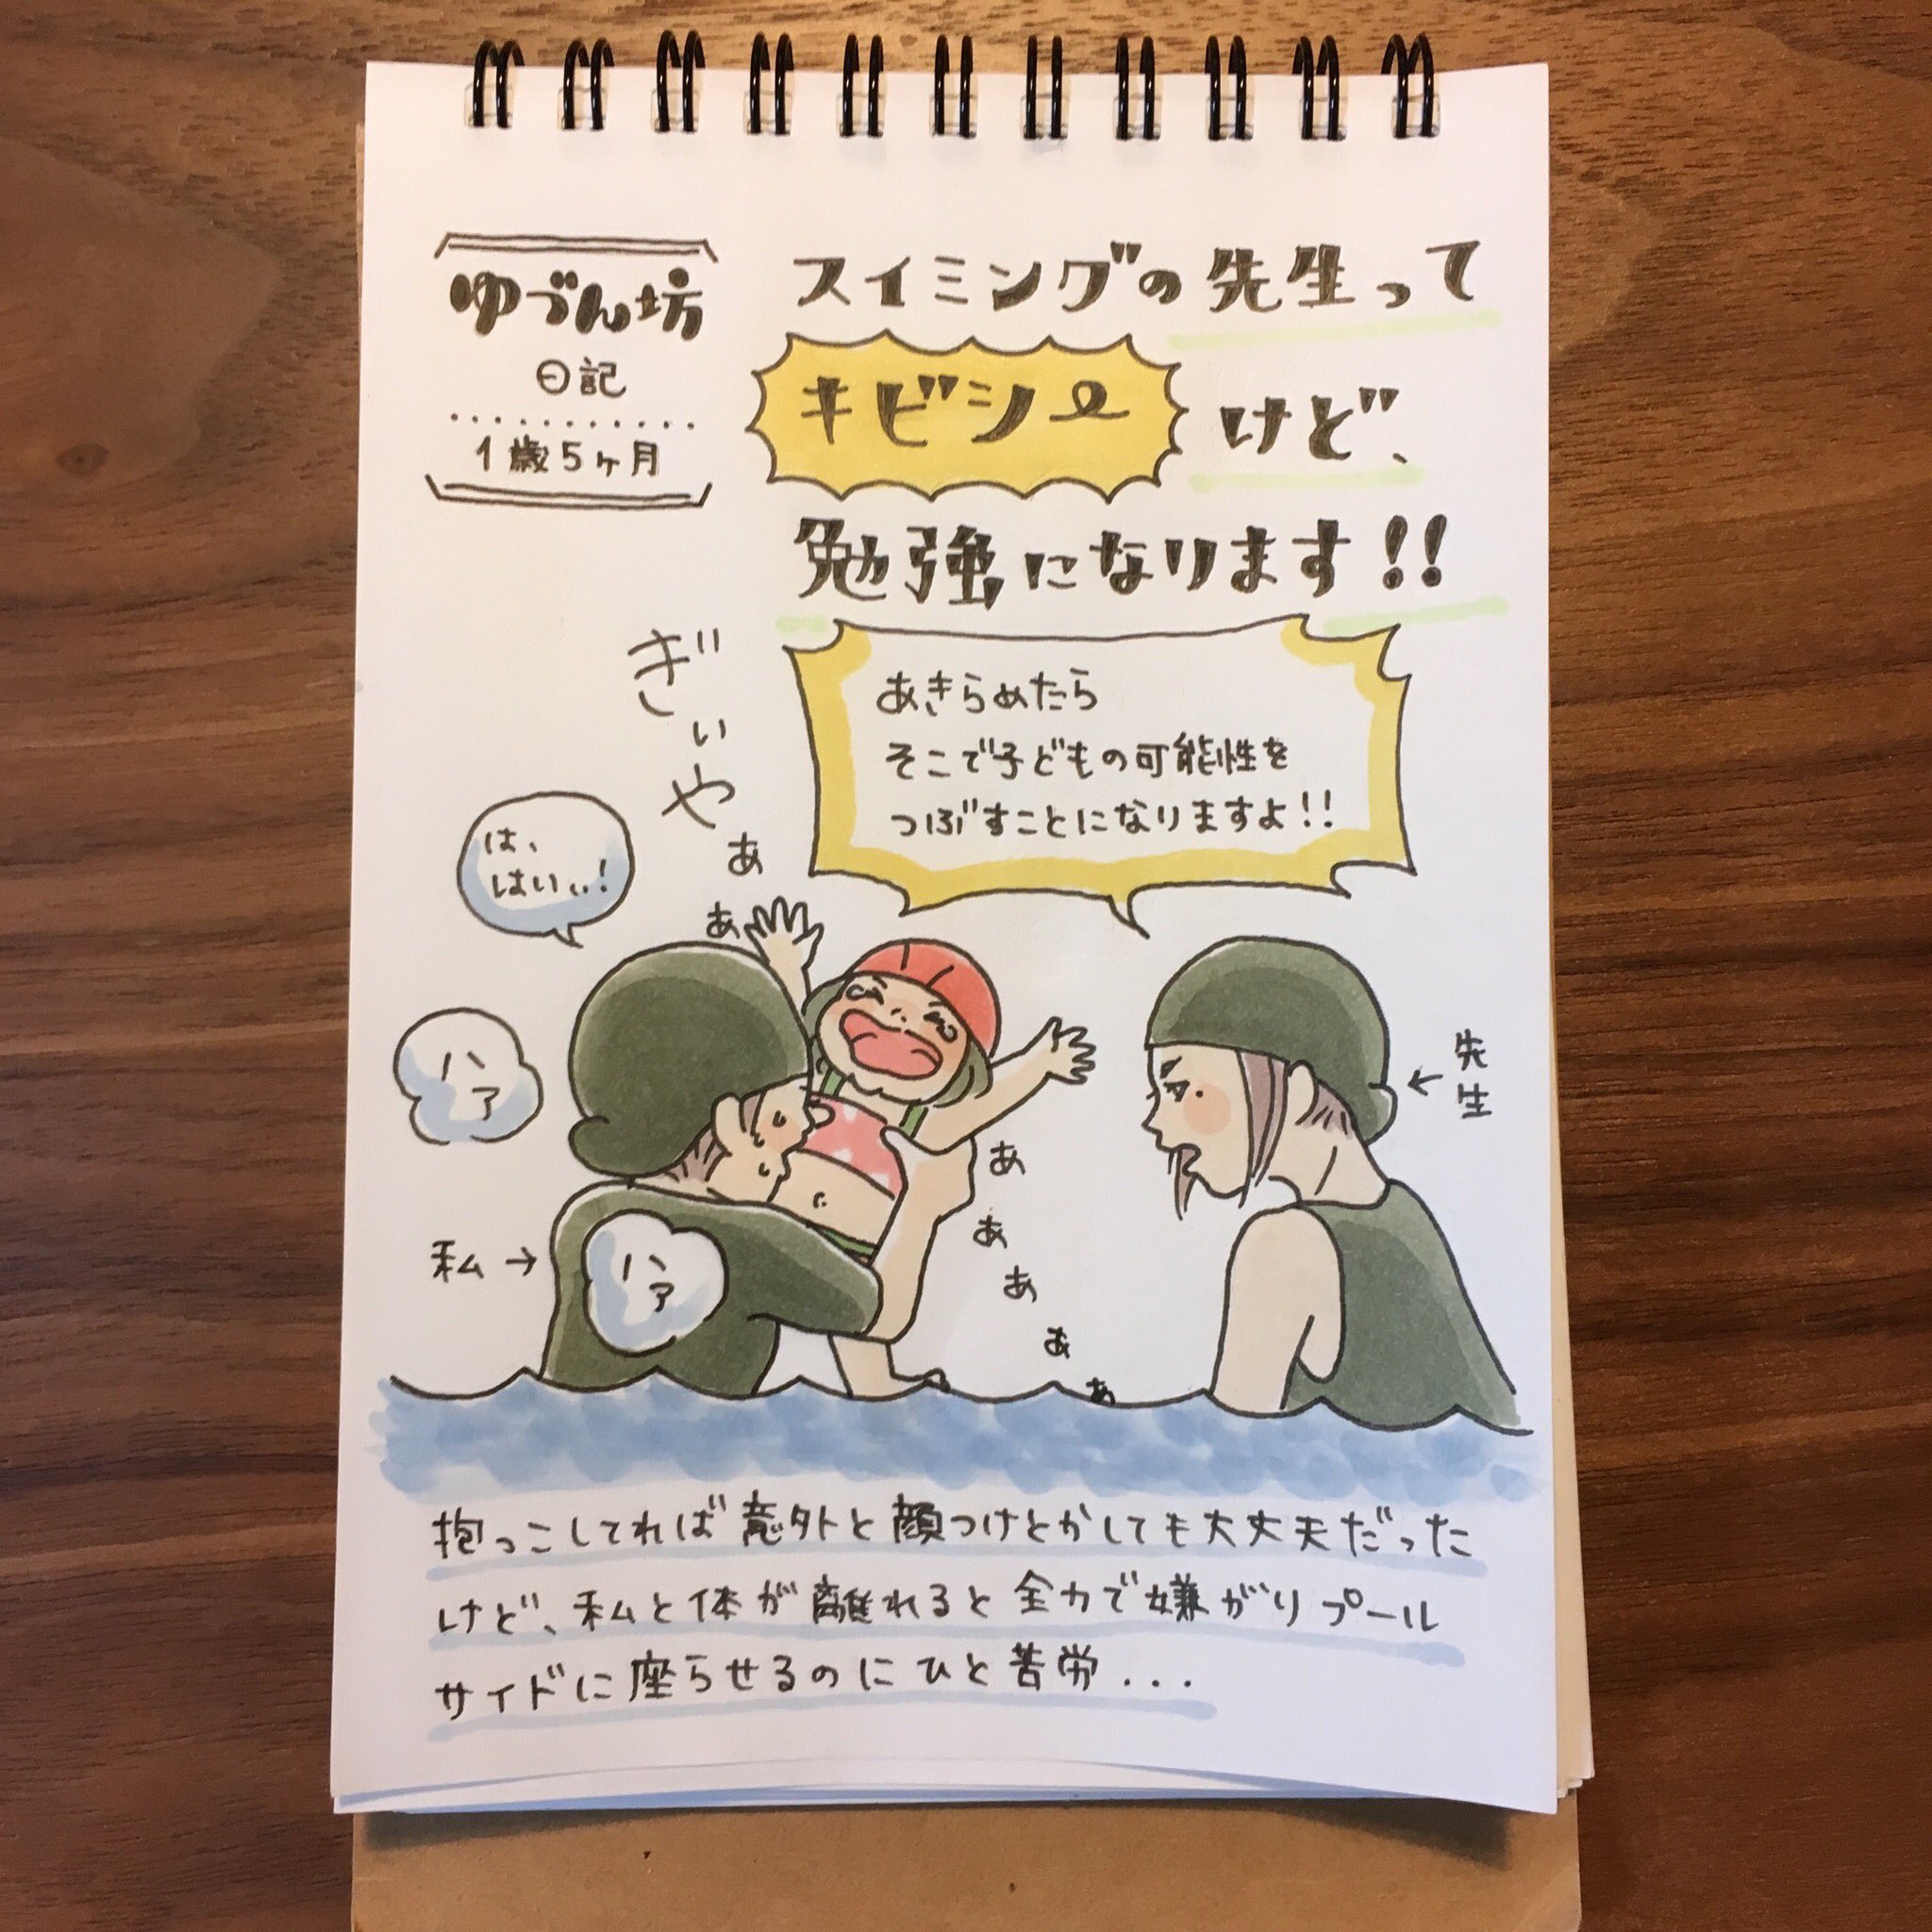 ゆづん坊
日記
1歳5ヶ月
スイミングの先生って
キビシーけど、
勉強になります!!
ぎぃやぁぁ
あきらめたら
そこで子どもの可能性を
つぶすことになりますよ!!
は、
はいぃ!
ハァ
私→
ハァ
ぁぁぁぁぁ
←先生
抱っこしてれば意外と顔つけとかしても大丈夫だった
けど、私と体が離れると全力で嫌がりプール
サイドに座らせるのにひと苦労...